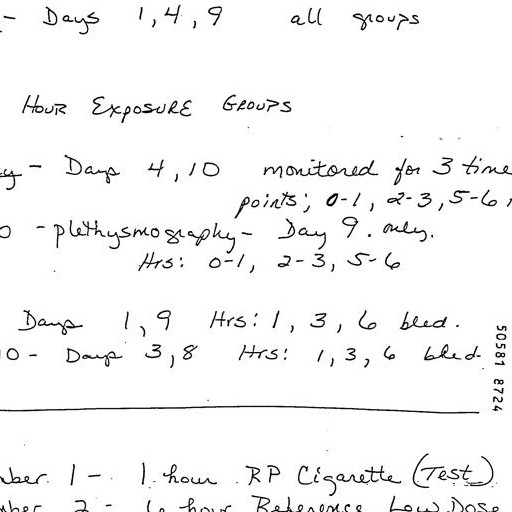 - Days 1, 4, 9 all groups
Hour Exposure Groups
- Days 4, 10 monitored for 3 time
points; 0-1, 2-3, 5-6
0 - plethysmography - Day 9. only.
Hrs: 0-1, 2-3, 5-6
Days 1, 9 Hrs: 1, 3, 6 bled.
0 - Days 3, 8 Hrs: 1, 3, 6 bled.
50581 8724
mber 1 - 1 hour RP Cigarette (Test)
mber 2 - 6 hour Reference Low Dose